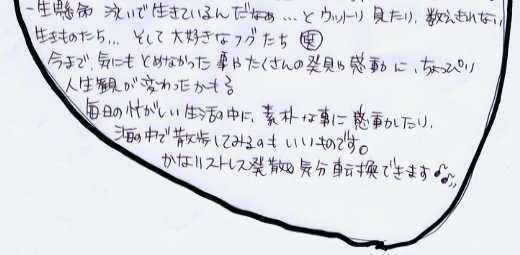 一生懸命 泳いで生きているんだなぁ…と ウットリ 見たり、数えきれない
生きものたち… そして 大好きなフグたち 笑
今まで、気にもとめなかった 事や たくさんの発見や感動に、ちょっぴり
人生観が変わったかも
毎日の忙がしい生活の中に、素朴な事に 感動したり、
海の中で散歩してみるのも いいものです。
かなりストレス発散 気分転換できます♪♪